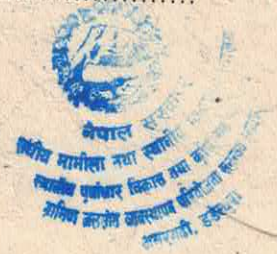 नेपाल सरकार
संघीय मामिला तथा स्थानीय
स्थानीय पूर्वाधार विकास तथा कृषि
ग्रामिण जलस्रोत व्यवस्थापन परियोजना
अमरगढी, डडेल्धुरा